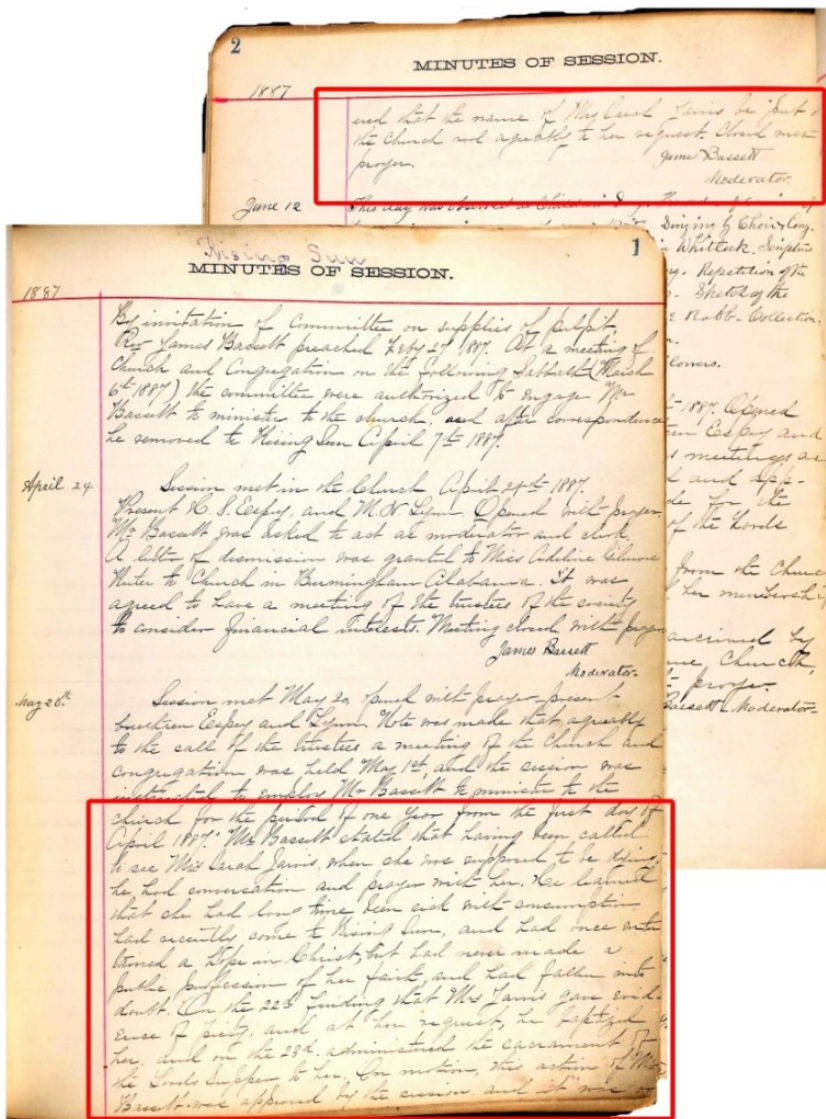 2
MINUTES OF SESSION.
1887
ered that the name of Mrs Sarah Jarvis be put
the Church roll agreeably to her request. Closed with
prayer.
James Bassett
Moderator.
June 12
This day was observed as Children's Day
Singing by Choir & Cong.
Whitlock. Scripture
Repetition of the
Sketch of the
Robb - Collection
1887. Opened
Espey and
meetings as
and app-
for the
of the Lords
from the Church
her membership
received by
Church,
prayer.
Bassett Moderator
Rising Sun
1
MINUTES OF SESSION.
1887
By invitation of Committee on supplies of pulpit,
Rev James Bassett preached Feby 27 1887. At a meeting of
Church and Congregation on the following Sabbath (March
6th 1887) the committee were authorized to engage Mr
Bassett to minister to the church, and after correspondence
he removed to Rising Sun April 7th 1887.
April 24
Session met in the Church April 24th 1887.
Present H. S. Espey, and M. N. Lynn Opened with prayer
Mr Bassett was asked to act as moderator and clerk.
A letter of dismission was granted to Miss Adeline Gilmore
to Church in Burmingham Alabama. It was
agreed to have a meeting of the trustees of the society
to consider financial interests. Meeting closed with prayer
James Bassett
Moderator.
May
Session met May opened with prayer present
brethren Espey and Lynn. Note was made that agreeably
to the call of the trustees a meeting of the Church and
congregation was held May 1st, and the session was
instructed to employ Mr Bassett to minister to the
church for the period of one year from the first day of
April 1887. Mr Bassett stated that having been called
to see Mrs Sarah Jarvis, when she was supposed to be dying,
he had conversation and prayer with her. He learned
that she had long time been sick with consumption
had recently come to Rising Sun, and had once enter
tained a hope in Christ, but had never made a
public profession of her faith, and had fallen into
doubt. On the 22d finding that Mrs Jarvis gave evid-
ence of piety, and at her request, he baptized
her, and on the 23d administered the sacrament of
the Lords Supper to her. On motion, this action of Mr
Bassett was approved by the session, and it was or